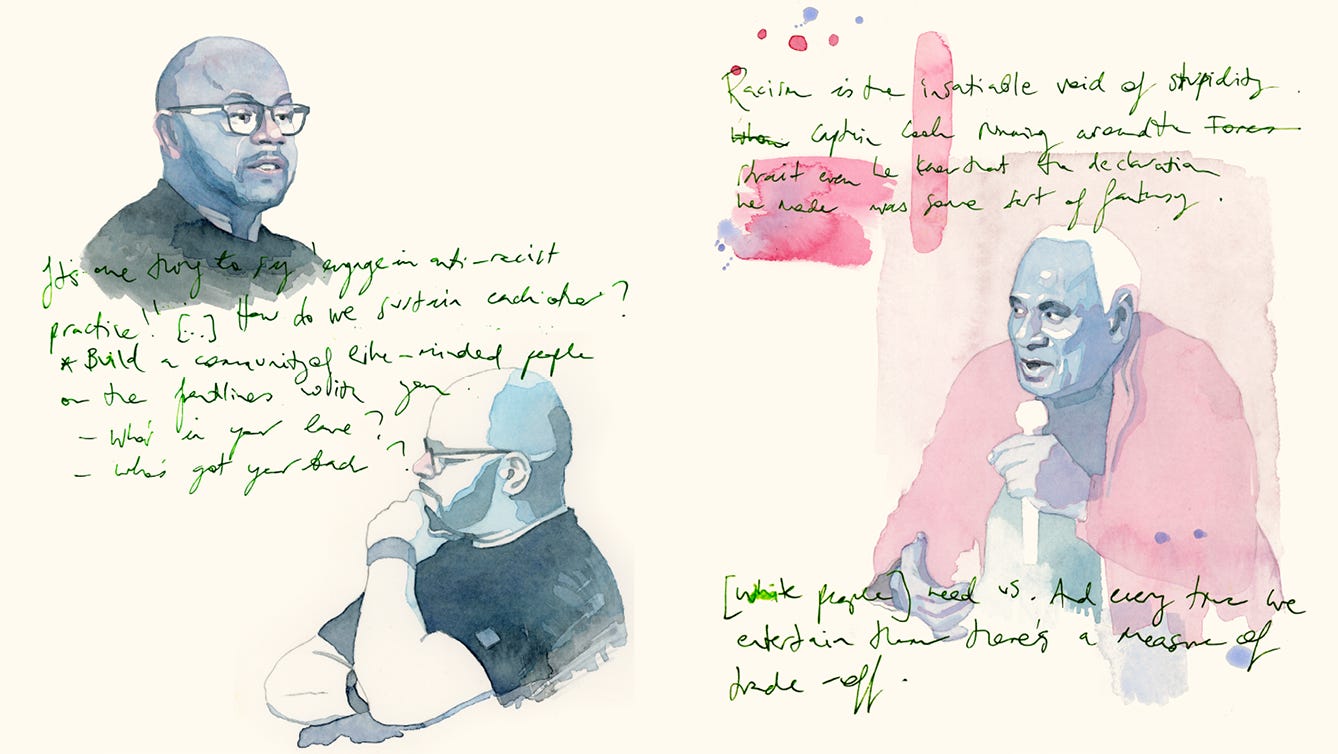 It's one thing to say "engage in anti-racist
practice" [...] How do we sustain each other?
* Build a community of like-minded people
on the frontlines with you.
- Who's in your lane?
- Who's got your back?
Racism is the insatiable void of stupidity.
Captain Cook running around the Torres
Strait even he knew that the declaration
he made was some sort of fantasy.
[white people] need us. And every time we
entertain them there's a measure of
trade-off.